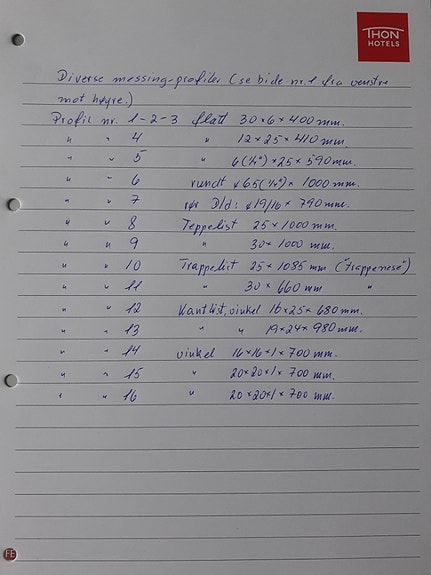 THON
HOTELS
Diverse messing-profiler (se bilde nr. 1 fra venstre
mot høyre.)
Profil nr. 1-2-3 flatt 30×6×400 mm.
" " 4 " 12×25×410 mm.
" " 5 " 6(¼")×25×590 mm.
" " 6 rundt ø 6,5(¼")× 1000 mm.
" " 7 rør D/d: ø19/16 × 790 mm.
" " 8 Teppelist 25×1000 mm.
" " 9 " 30×1000 mm.
" " 10 Trappelist 25×1085 mm ("trappenese")
" " 11 " 30×660 mm "
" " 12 Kantlist, vinkel 16×25×680 mm.
" " 13 " " 19×24×980 mm.
" " 14 vinkel 16×16×1×700 mm.
" " 15 " 20×20×1×700 mm.
" " 16 " 20×20×1×700 mm.
FE